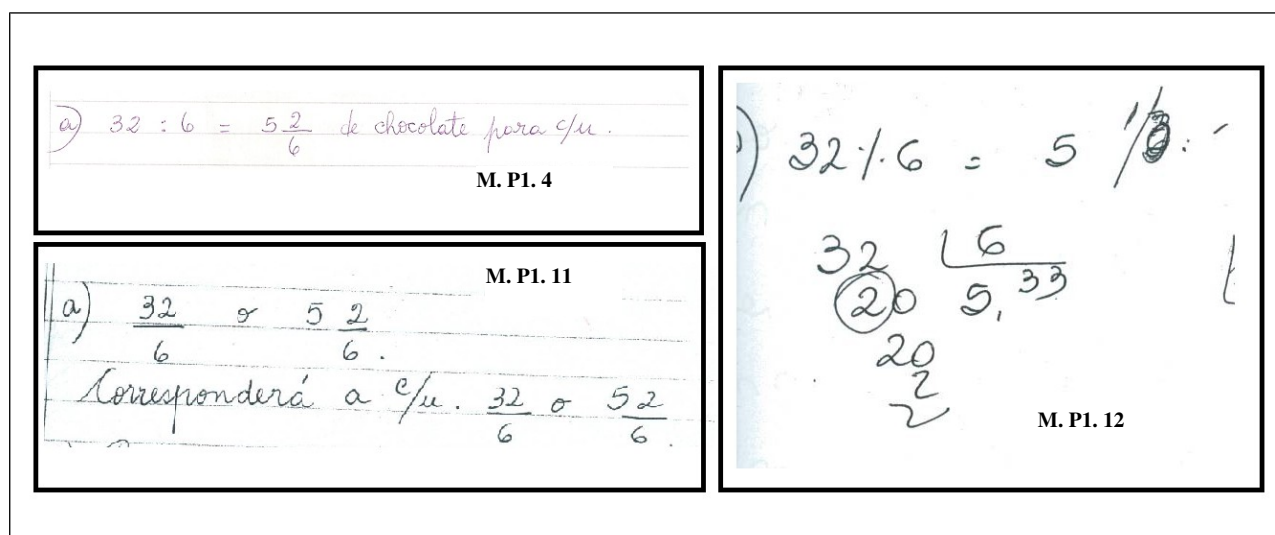 a) 32 : 6 = 5 2/6 de chocolate para c/u.
M. P1. 4
M. P1. 11
a) 32/6 o 5 2/6.
Corresponderá a c/u. 32/6 o 5 2/6.
) 32 ./. 6 = 5 1/3.
32 6
20 5,33
20
2
M. P1. 12